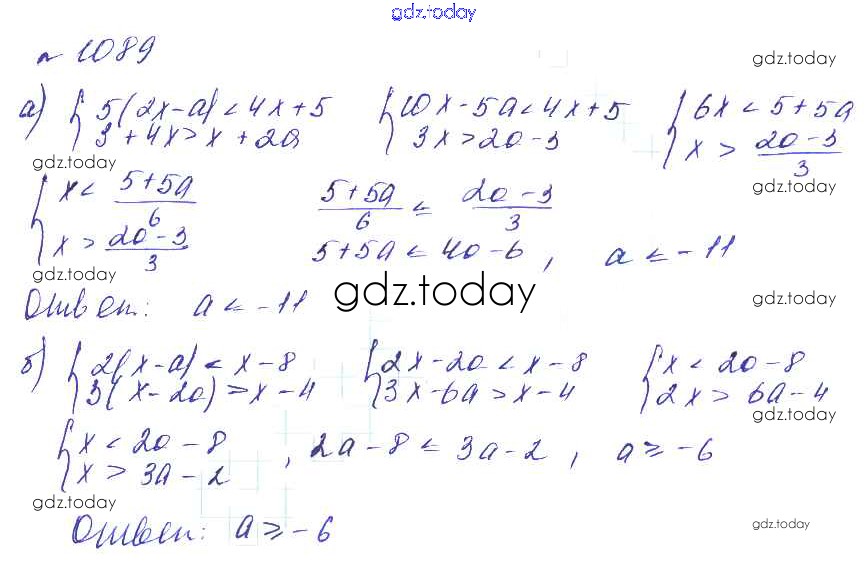 gdz.today
№ 1089
gdz.today
а) { 5(2x-a) < 4x+5 { 10x-5a < 4x+5 { 6x < 5+5a
3+4x > x+2a 3x > 2a-3 x > (2a-3)/3
gdz.today gdz.today
{ x < (5+5a)/6 (5+5a)/6 ≤ (2a-3)/3
x > (2a-3)/3 5+5a ≤ 4a-6, a ≤ -11
gdz.today gdz.today
Ответ: a ≤ -11 gdz.today gdz.today
б) { 2(x-a) < x-8 { 2x-2a < x-8 { x < 2a-8
3(x-2a) > x-4 3x-6a > x-4 2x > 6a-4
gdz.today
{ x < 2a-8 , 2a-8 ≤ 3a-2, a ≥ -6
x > 3a-2
gdz.today
Ответ: a ≥ -6 gdz.today